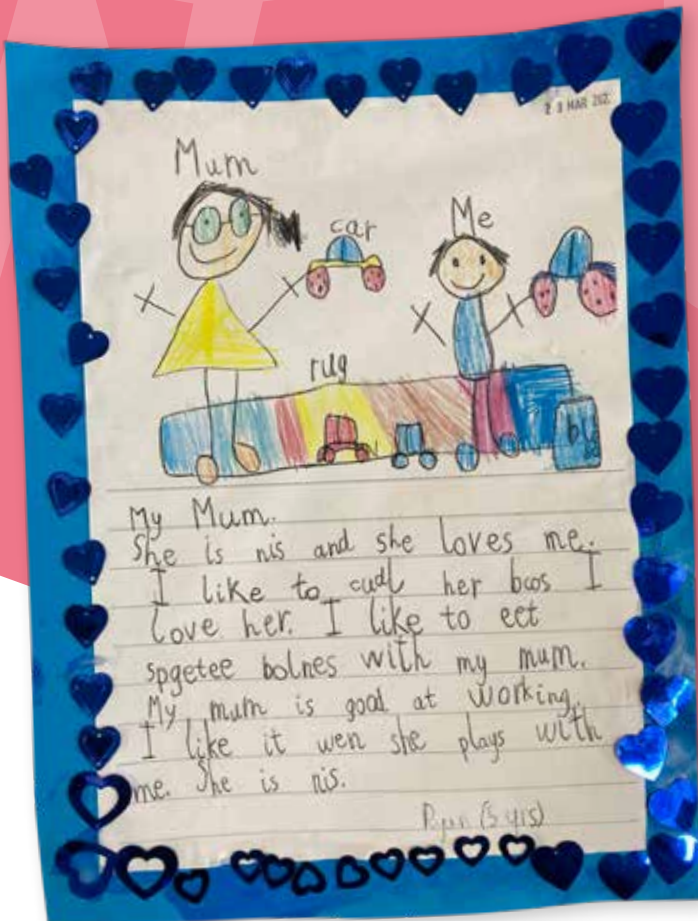 2 3 MAR 202
Mum
car
Me
rug
My Mum.
She is nis and she loves me.
I like to cudl her bcos I
love her. I like to eet
spgetee bolnes with my mum.
My mum is good at working.
I like it wen she plays with
me. She is nis.
(5 yrs)